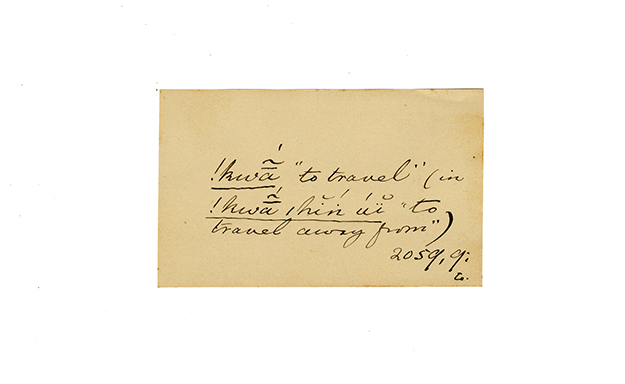 !kwā̰́ "to travel" (in
!kwā̰́ ǀhĭń úĭ "to
travel away from")
2059, 9: